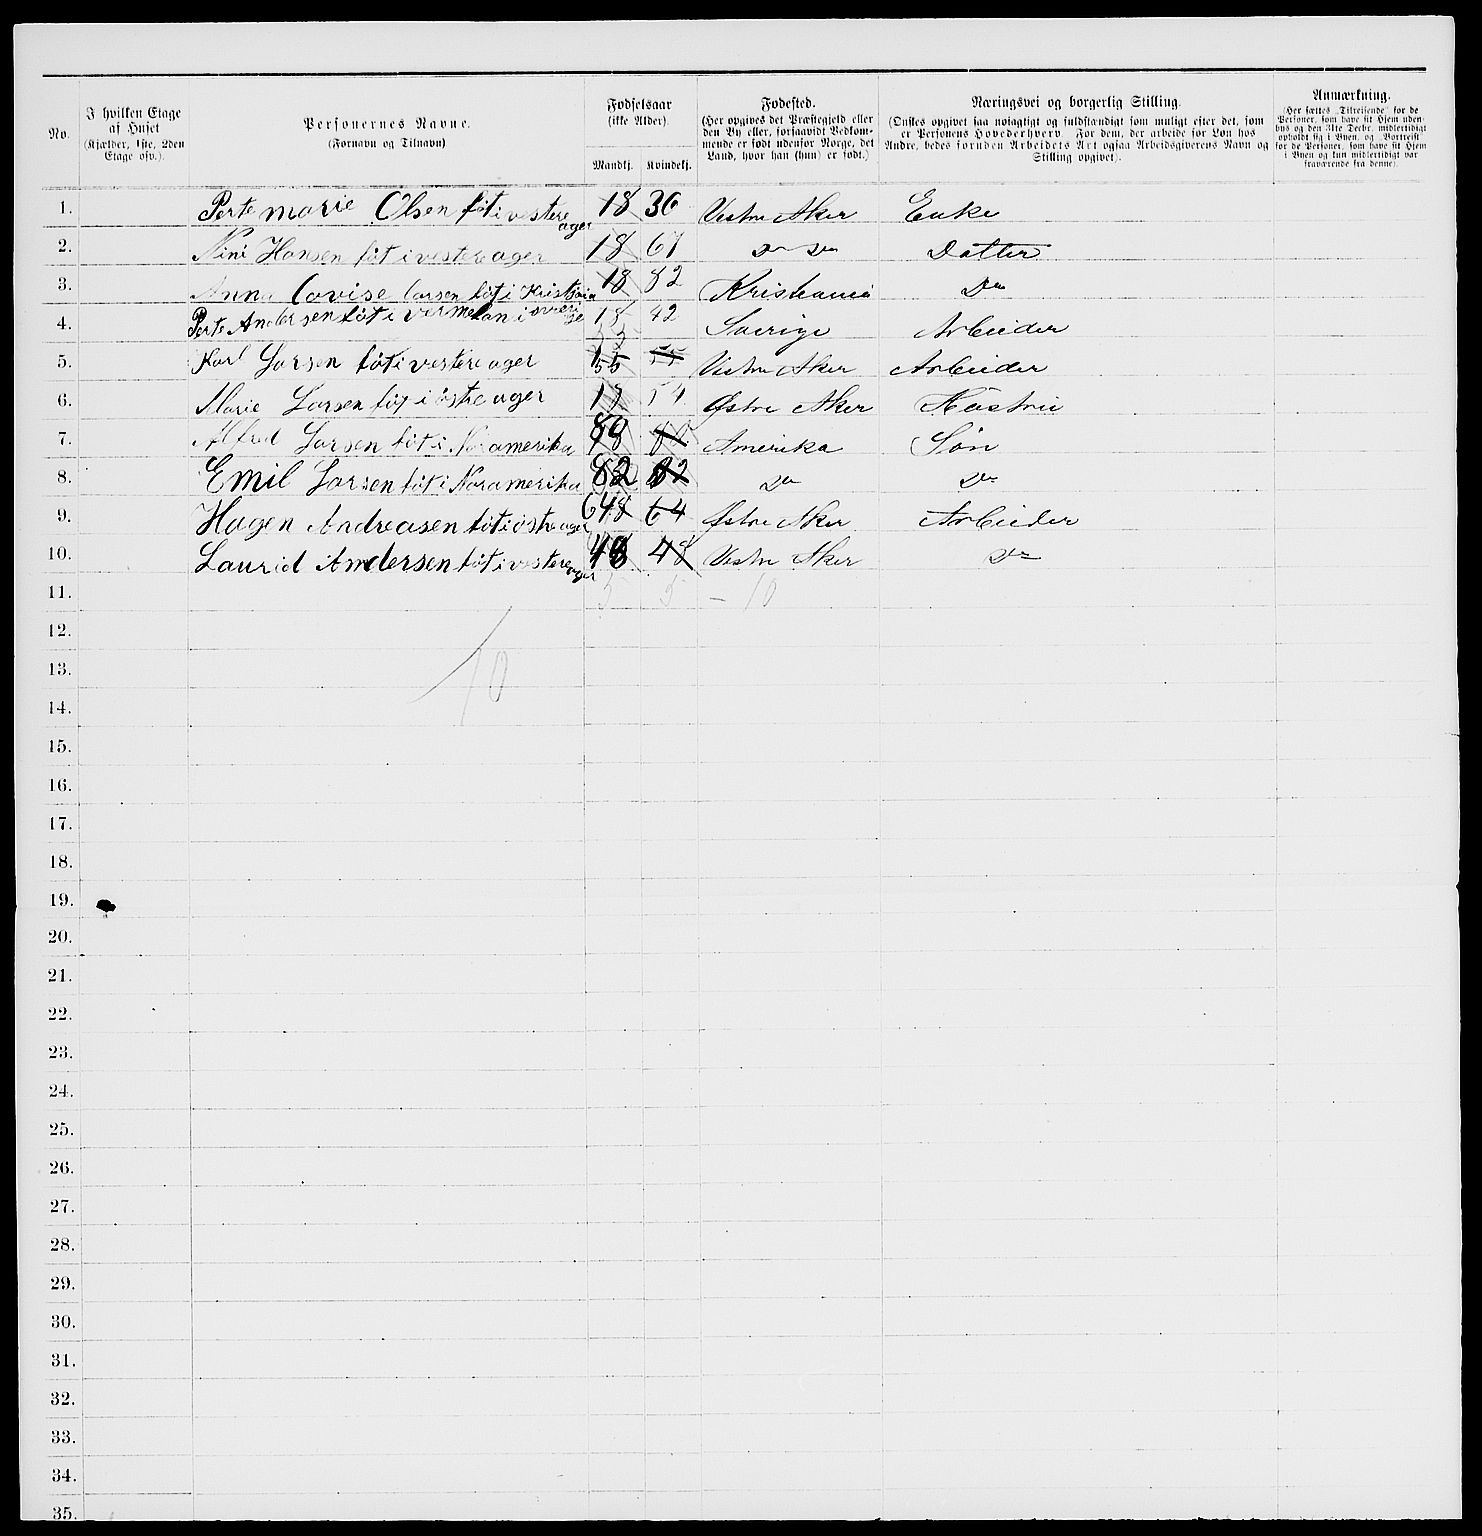 No.
I hvilken Etage
af Huset
(Kjælder, 1ste, 2den
Etage osv.).
Personernes Navne.
(Fornavn og Tilnavn)
Fødselsaar
(ikke Alder).
Mandkj. Kvindekj.
Fødested.
(Her opgives det Præstegjeld eller
den By eller, forsaavidt Vedkom-
mende er født udenfor Norge, det
Land, hvor han (hun) er født.)
Næringsvei og borgerlig Stilling.
(Ønskes opgivet saa nøiagtigt og fuldstændigt som muligt efter det, som
er Personens Hovederhverv. For dem, der arbeide for Løn hos
Andre, bedes foruden Arbeidets Art ogsaa Arbeidsgiverens Navn og
Stilling opgivet).
Anmærkning.
(Her sættes „Tilreisende“ for de
Personer, som have sit Hjem uden-
bys og den 31te Decbr. midlertidigt
opholdt sig i Byen, og „Bortreist“
for de Personer, som have sit Hjem
i Byen og kun midlertidigt var
fraværende fra denne).
1. Perte marie Olsen föt i vestere ager 18 36 Vestre Aker Enke
2. Nini Hansen föt i vestere ager 18 67 Do Do Datter
3. Anna Lovise Larsen föt i Kristjania 18 82 Kristiania Do
4. Perte Andersen föt i vermelan i 18 42 Sverige Arbeider
5. Karl Larsen föt i vestere ager 55 55 Vestre Aker Arbeider
6. Marie Larsen föt i östre ager 54 Østre Aker Hustru
7. Alfred Larsen föt i Noramerika 80 80 Amerika Søn
8. Emil Larsen föt i Noramerika 82 82 Do Do
9. Hagen Andreasen föt i östre ager 64 64 Østre Aker Arbeider
10. Laurid Andersen föt i vestere ager 48 48 Vestre Aker Do
11. 5 5 - 10
12.
13. 10
14.
15.
16.
17.
18.
19.
20.
21.
22.
23.
24.
25.
26.
27.
28.
29.
30.
31.
32.
33.
34.
35.